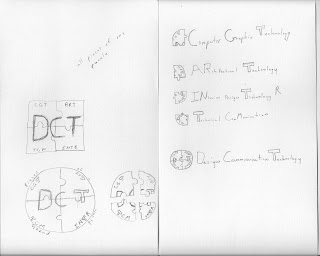 all pieces of one
puzzle
CGT ART
DCT
TCM INTR
CGT
DCT
TCM INTR
Computer Graphic Technology
ARchitectural Technology
INterior Design Technology R
Technical CoMmunication
Design Communication Technology